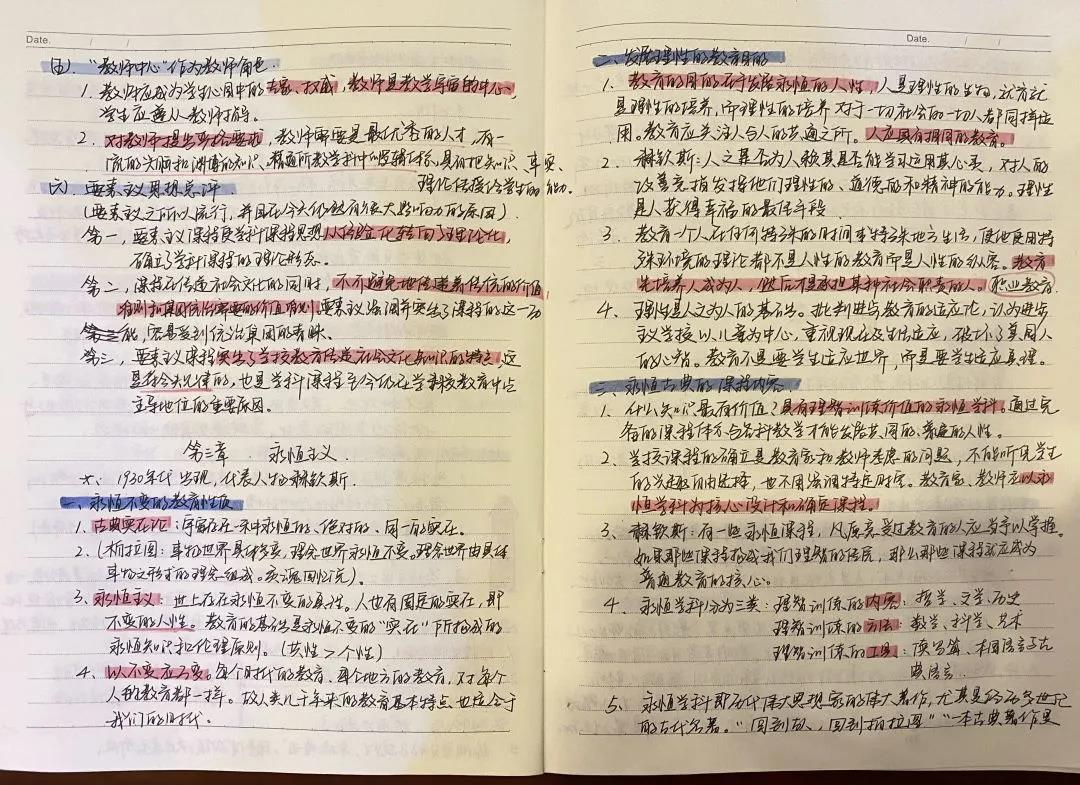 Date. / /
(五). "教师中心"作为教师角色.
1. 教师应成为学生心目中的专家、权威,教师是教学导宿的中心,
学生应遵从教师指导。
2. 对教师提出严格要求,教师需要是最优秀的人才,有一
流的头脑和渊博的知识、精通所教学科中的逻辑体系,具有把知识、事实、
理论传授给学生的能力.
(六). 要素主义思想总评
(要素主义之所以流行,并且在今天仍然有很大影响力的原因).
第一,要素主义课程使学科课程思想从经验化转向了理论化,
确立了学科课程的理论形态。
第二,课程在传递社会文化的同时,不可避免地传递着传统的价值
准则和集团统治需要的价值准则.要素主义强调并突出了课程的这一功
能,容易受到统治集团的青睐.
第三,要素主义课程突出了学校教育传递社会文化知识的特点,这
是古今共律的,也是学科课程至今仍在学校教育中占
主导地位的重要原因。
第三章 永恒主义.
*、1930年代出现,代表人物赫钦斯.
一、永恒不变的教育性质
1. 古典实在论:宇宙存在一永恒的、绝对的、同一的实在.
2. (柏拉图:事物世界具体多变,理念世界永恒不变.理念世界由具体
事物之形式的理念组成。灵魂回忆说).
3. 永恒主义:世上存在永恒不变的真理。人也有固定的实在,即
不变的人性。教育的基础是永恒不变的"实在"所构成的
永恒知识和伦理原则.(共性>个性)
4、以不变应万变。每个时代的教育、每个地方的教育,对每个
人的教育都一样。故人类几千年来的教育基本特点也适合于
我们的时代.
Date. / /
二、发展理性的教育目的
1. 教育的目的在于发展永恒的人性,人是理性的生物,教育就
是理性的培养,而理性的培养对于一切社会的一切人都同样适
用。教育应关注人与人的共通之所。人应具有相同的教育。
2. 赫钦斯:人之是否为人赖其是否能学习运用其心灵,对人的
改善意指发挥他们理性的、道德的和精神的能力.理性
是人获得幸福的最佳手段.
3. 教育一个人在任何特殊的时间或特殊地方生活,使他使用特
殊环境的理论都不是人性的教育而是人性的纵容。教育
先培养人成为人,然后才是承担某种社会职责的人.(职业教育
4. 理性是人之为人的基础。批判进步教育的适应论,认为进步
主义学校以儿童为中心,重视现在及生活适应,破坏了美国人
的心智。教育不是要学生适应世界,而是要学生适应真理。
三、永恒古典的课程内容.
1. 什么知识最有价值?具有理智训练价值的永恒学科。通过完
备的课程体系与各科教学才能发展共同的、普遍的人性。
2、学校课程的确立是教育家和教师考虑的问题,不能听凭学生
的兴趣自由选择,也不用强调特定时空。教育家、教师应以永
恒学科为核心设计和确定课程。
3、赫钦斯:有一些永恒课程,凡属享受过教育的人应当予以掌握.
如果那些课程构成我们理智的传统,那么那些课程就应成为
普通教育的核心。
4、永恒学科分为三类:理智训练的内容:哲学、文学、历史
理智训练的方法:数学、科学、艺术
理智训练的工具:读写算、本国语言与古
典语言.
5、永恒学科即历代伟大思想家的伟大著作,尤其是经历多世纪
的古代名著。"回到故,回到柏拉图""一本古典著作是